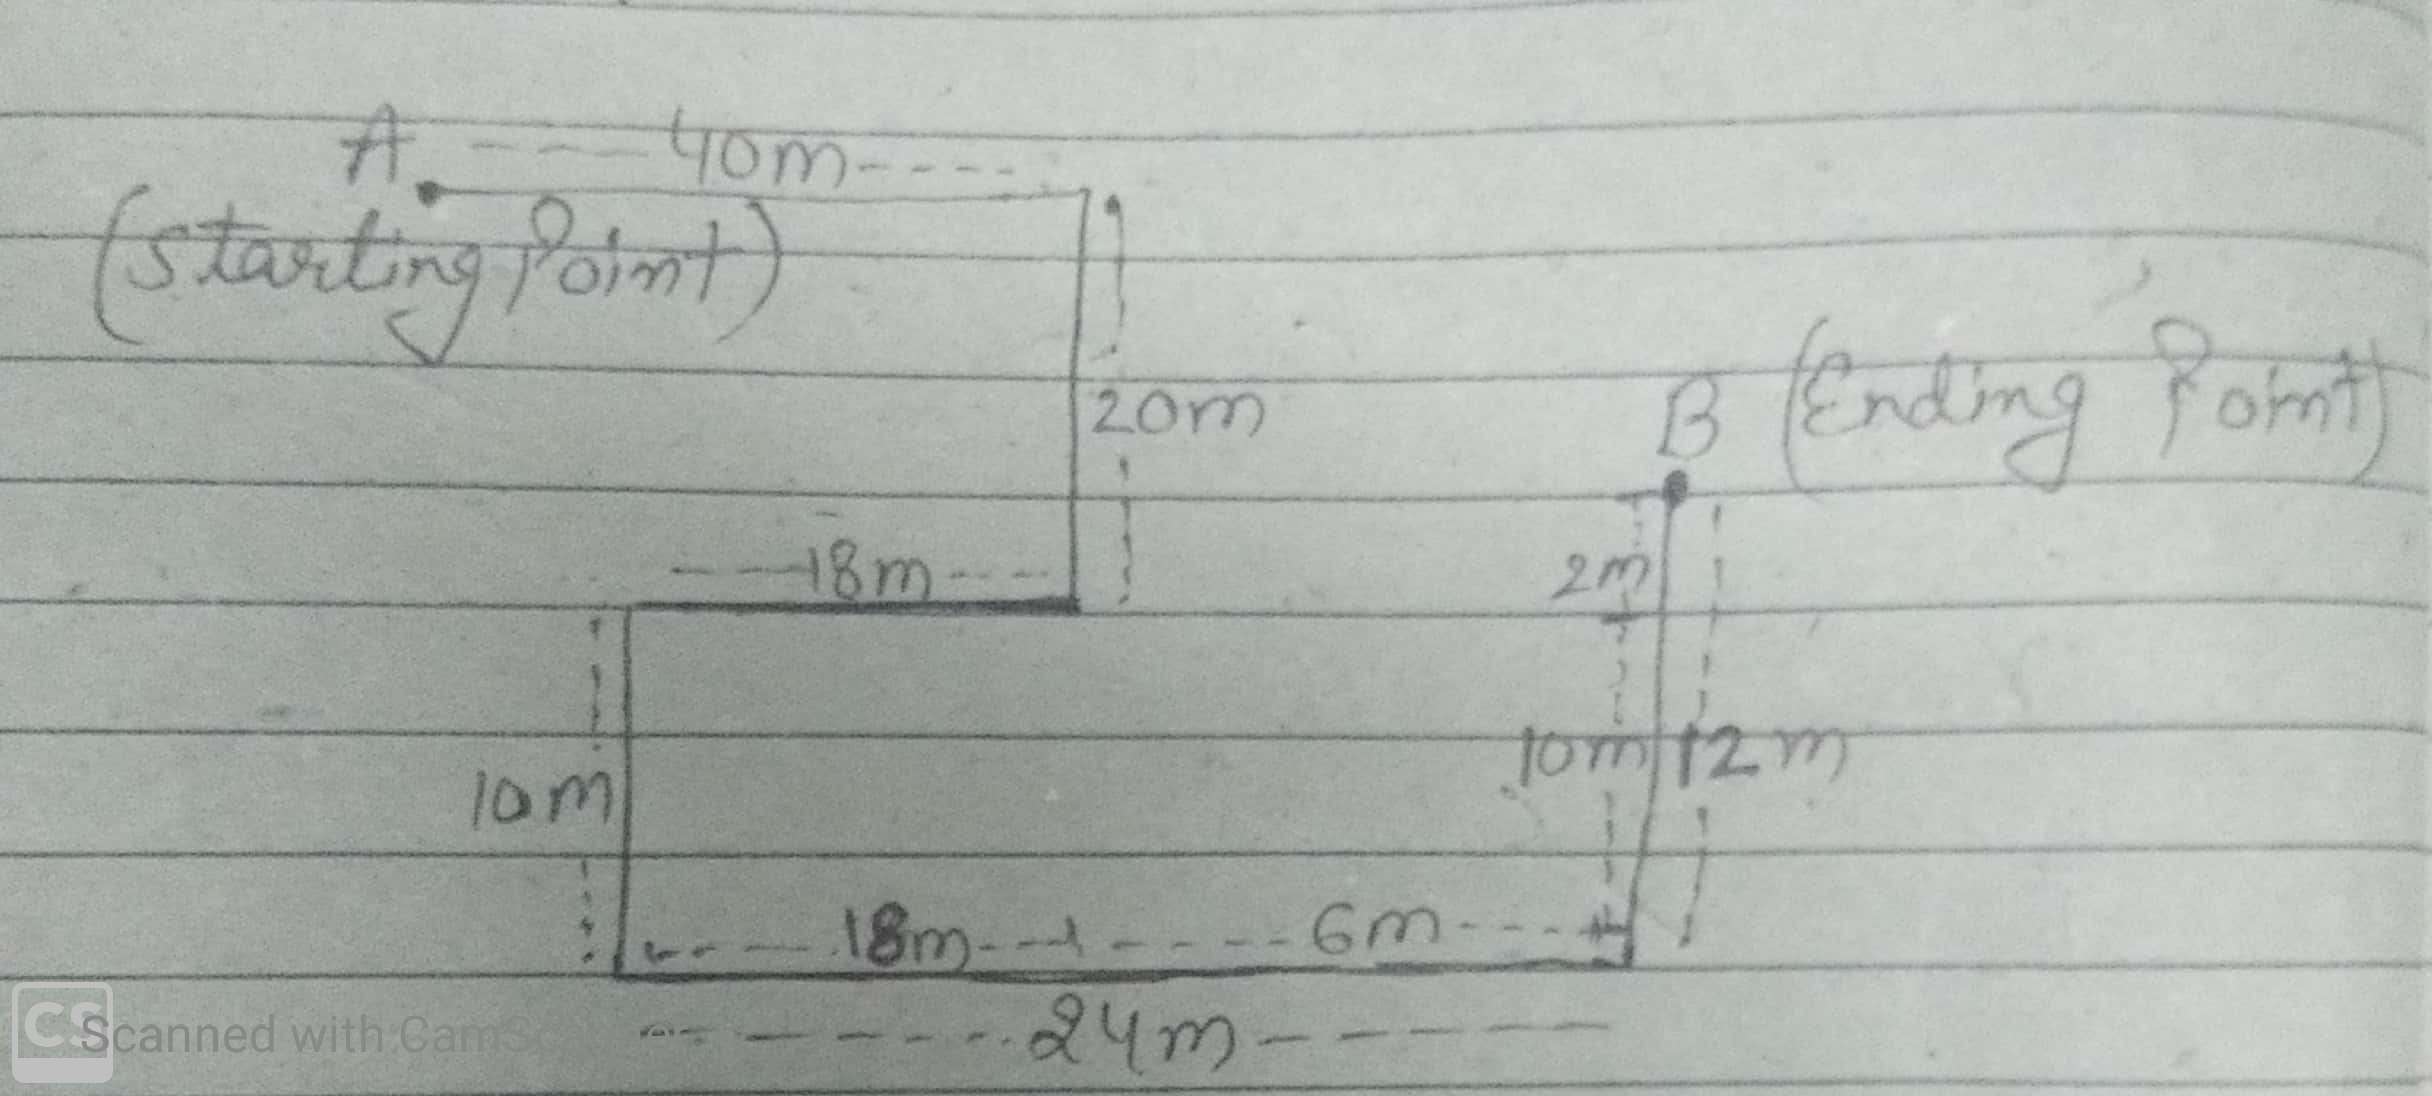 A 40m
(Starting Point)
20m
B (Ending Point)
18m
2m
10m
10m 12m
18m 6m
24m
CS Scanned with CamS